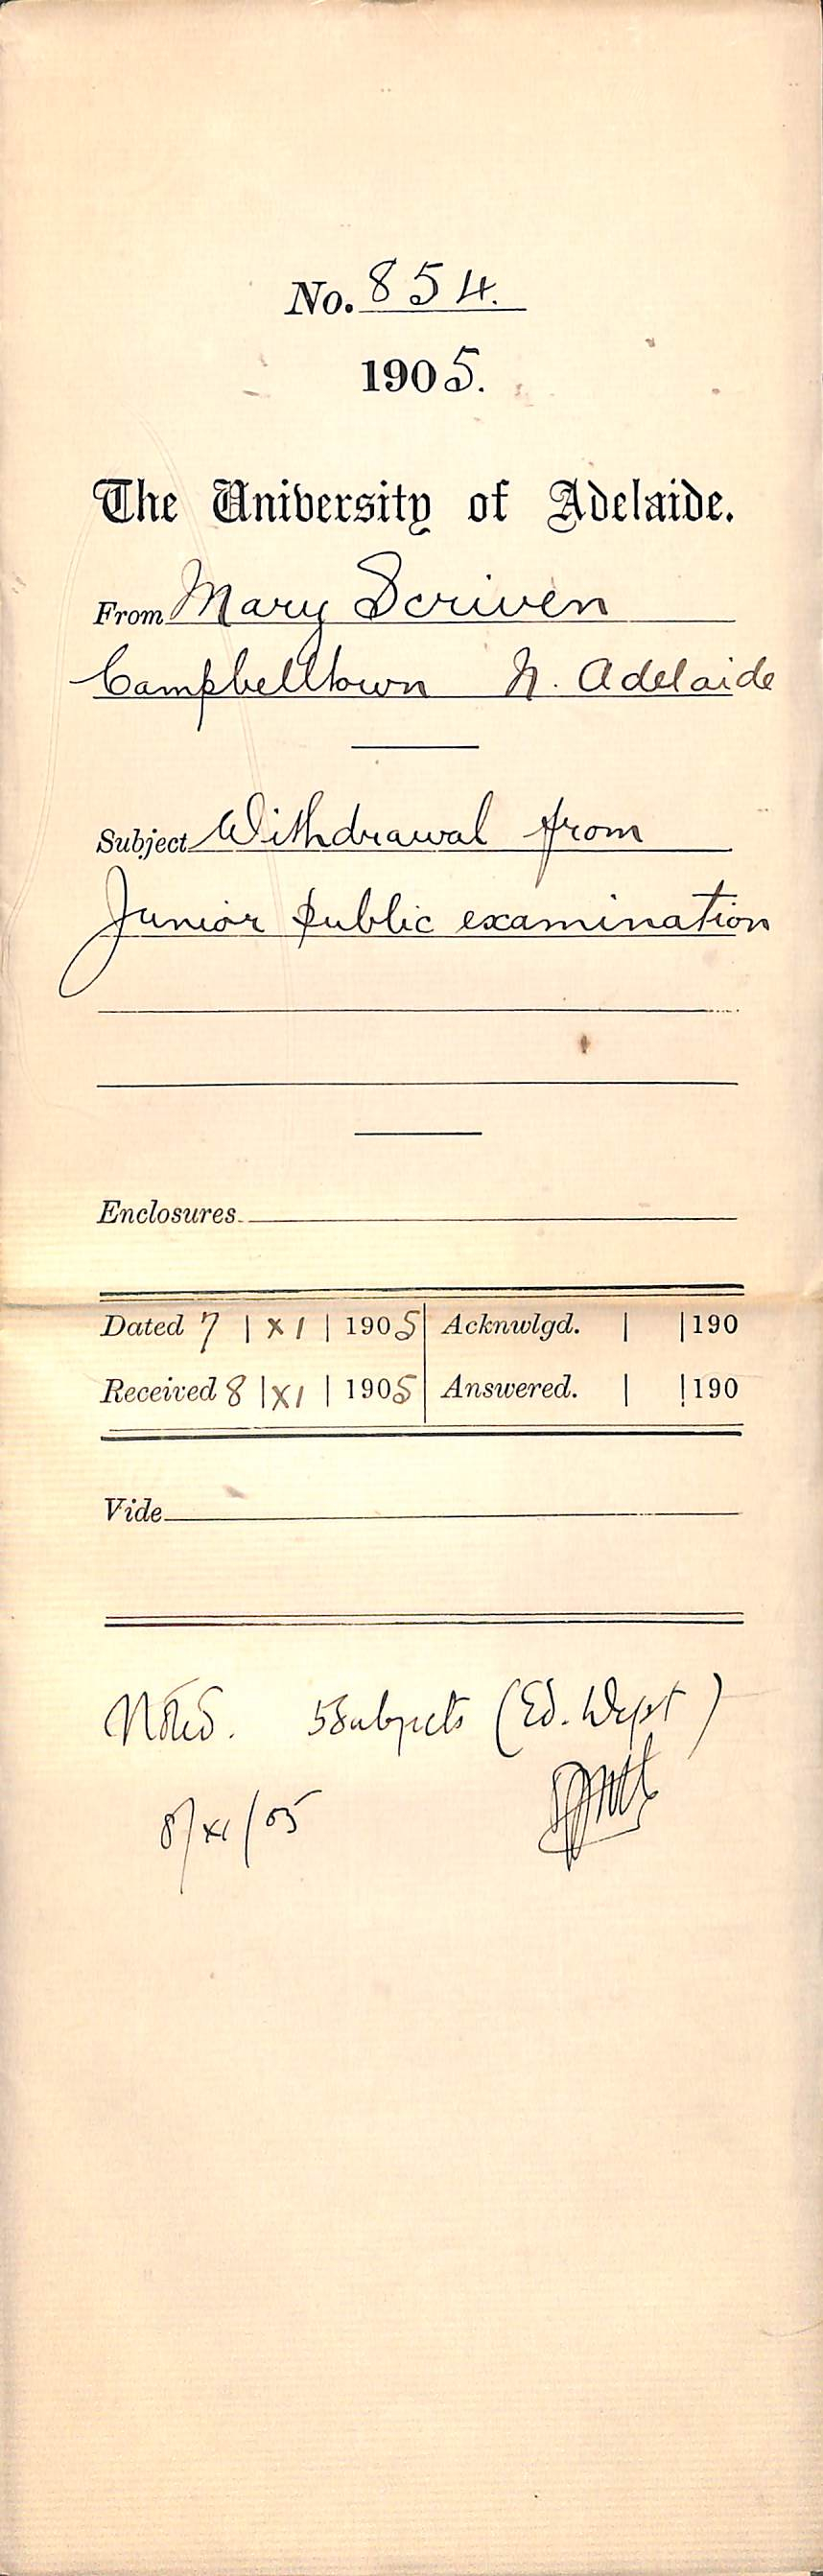 No. 854.
1905.
The University of Adelaide.
From Mary Scriven
Campbelltown N. Adelaide
Subject Withdrawal from
Junior public examination
Enclosures
Dated 7 | XI | 1905 Acknwlgd. | | 190
Received 8 | XI | 1905 Answered. | | 190
Vide
Noted. 5 Subjects (Ed. Dept)
8/XI/05